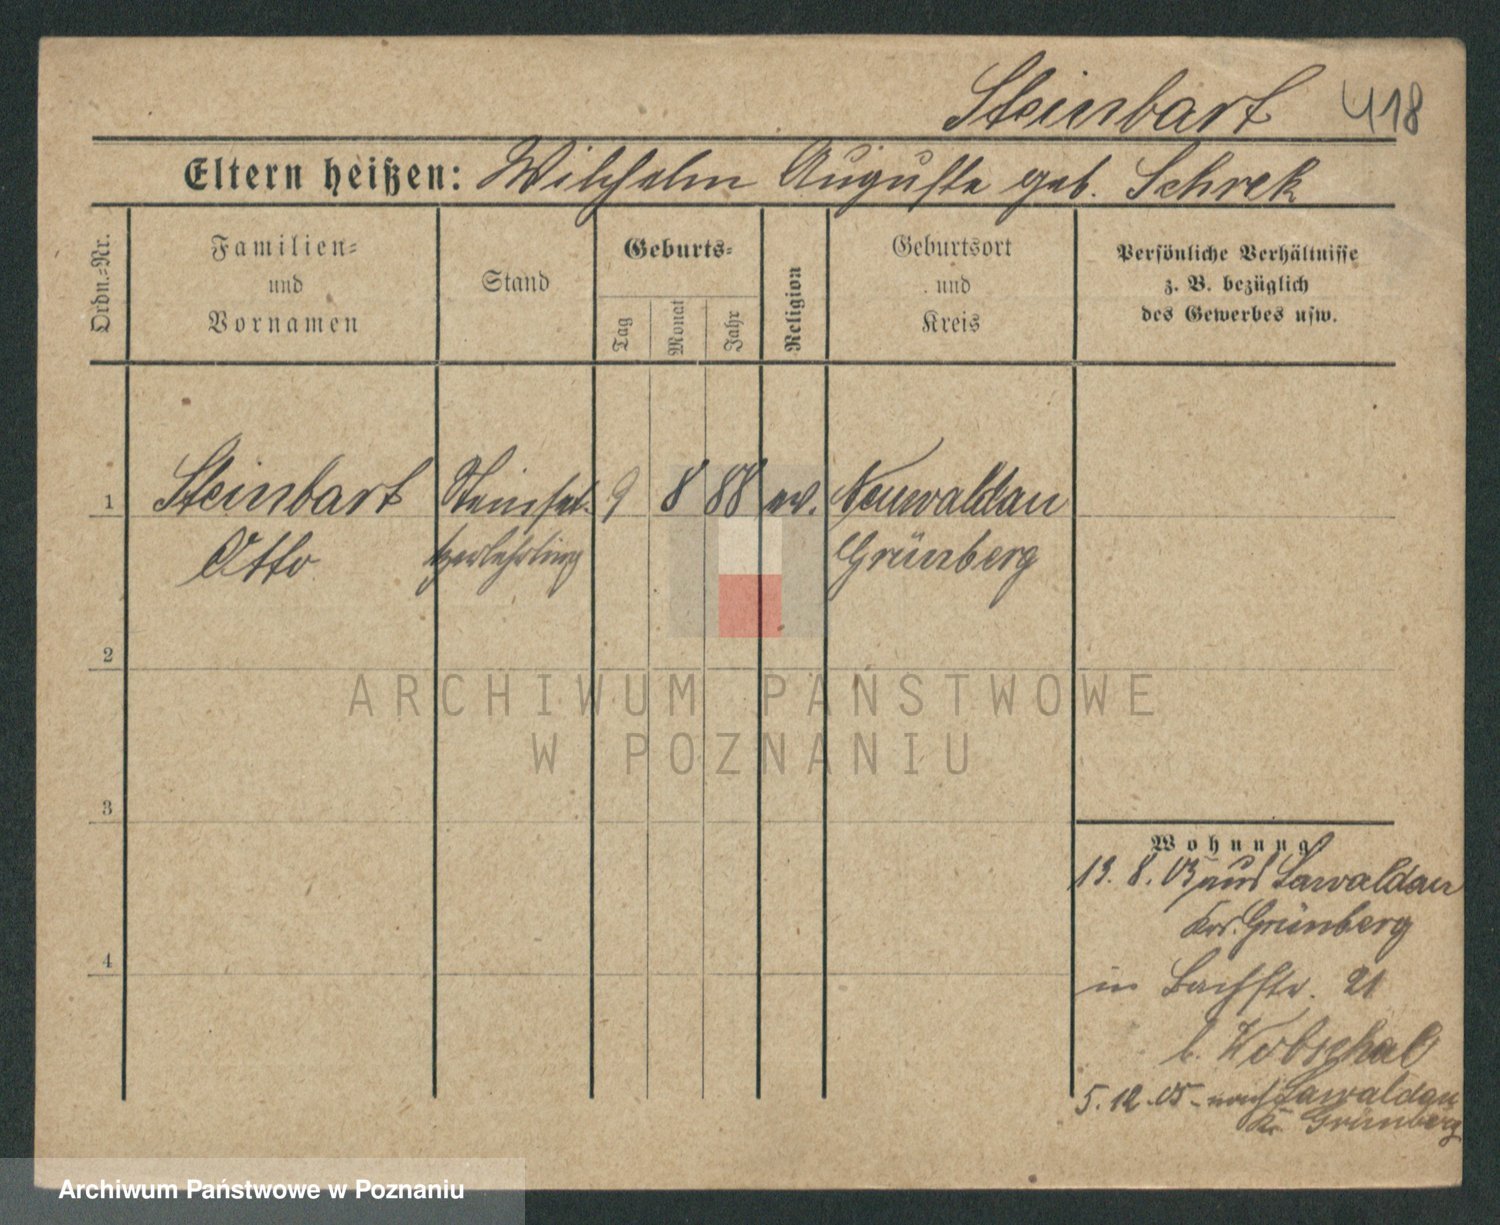 Steinbart 418
Eltern heißen: Wilhelm Auguste geb. Schrek
Ordn.=Nr.
Familien=
und
Vornamen
Stand
Geburts=
Tag
Monat
Jahr
Religion
Geburtsort
und
Kreis
Persönliche Verhältnisse
z. B. bezüglich
des Gewerbes usw.
1 Steinbart Steinset- 9 8 88 ev. Neuwaldau
Otto zerlehrling Grünberg
2
3
4
Wohnung
13. 8. 03 aus Sawaldau
Krs. Grünberg
in Bachstr. 21
b.
5. 12. 05 - nach Sawaldau
Kr. Grünberg
ARCHIWUM PAŃSTWOWE
W POZNANIU
Archiwum Państwowe w Poznaniu